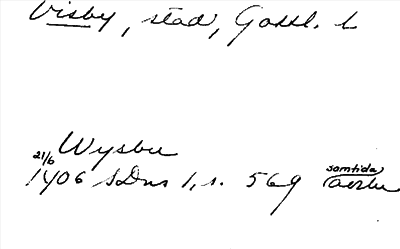 Visby, stad, Gottl. l
Wysbu
21/6 1406 SDns 1, s. 569 samtida